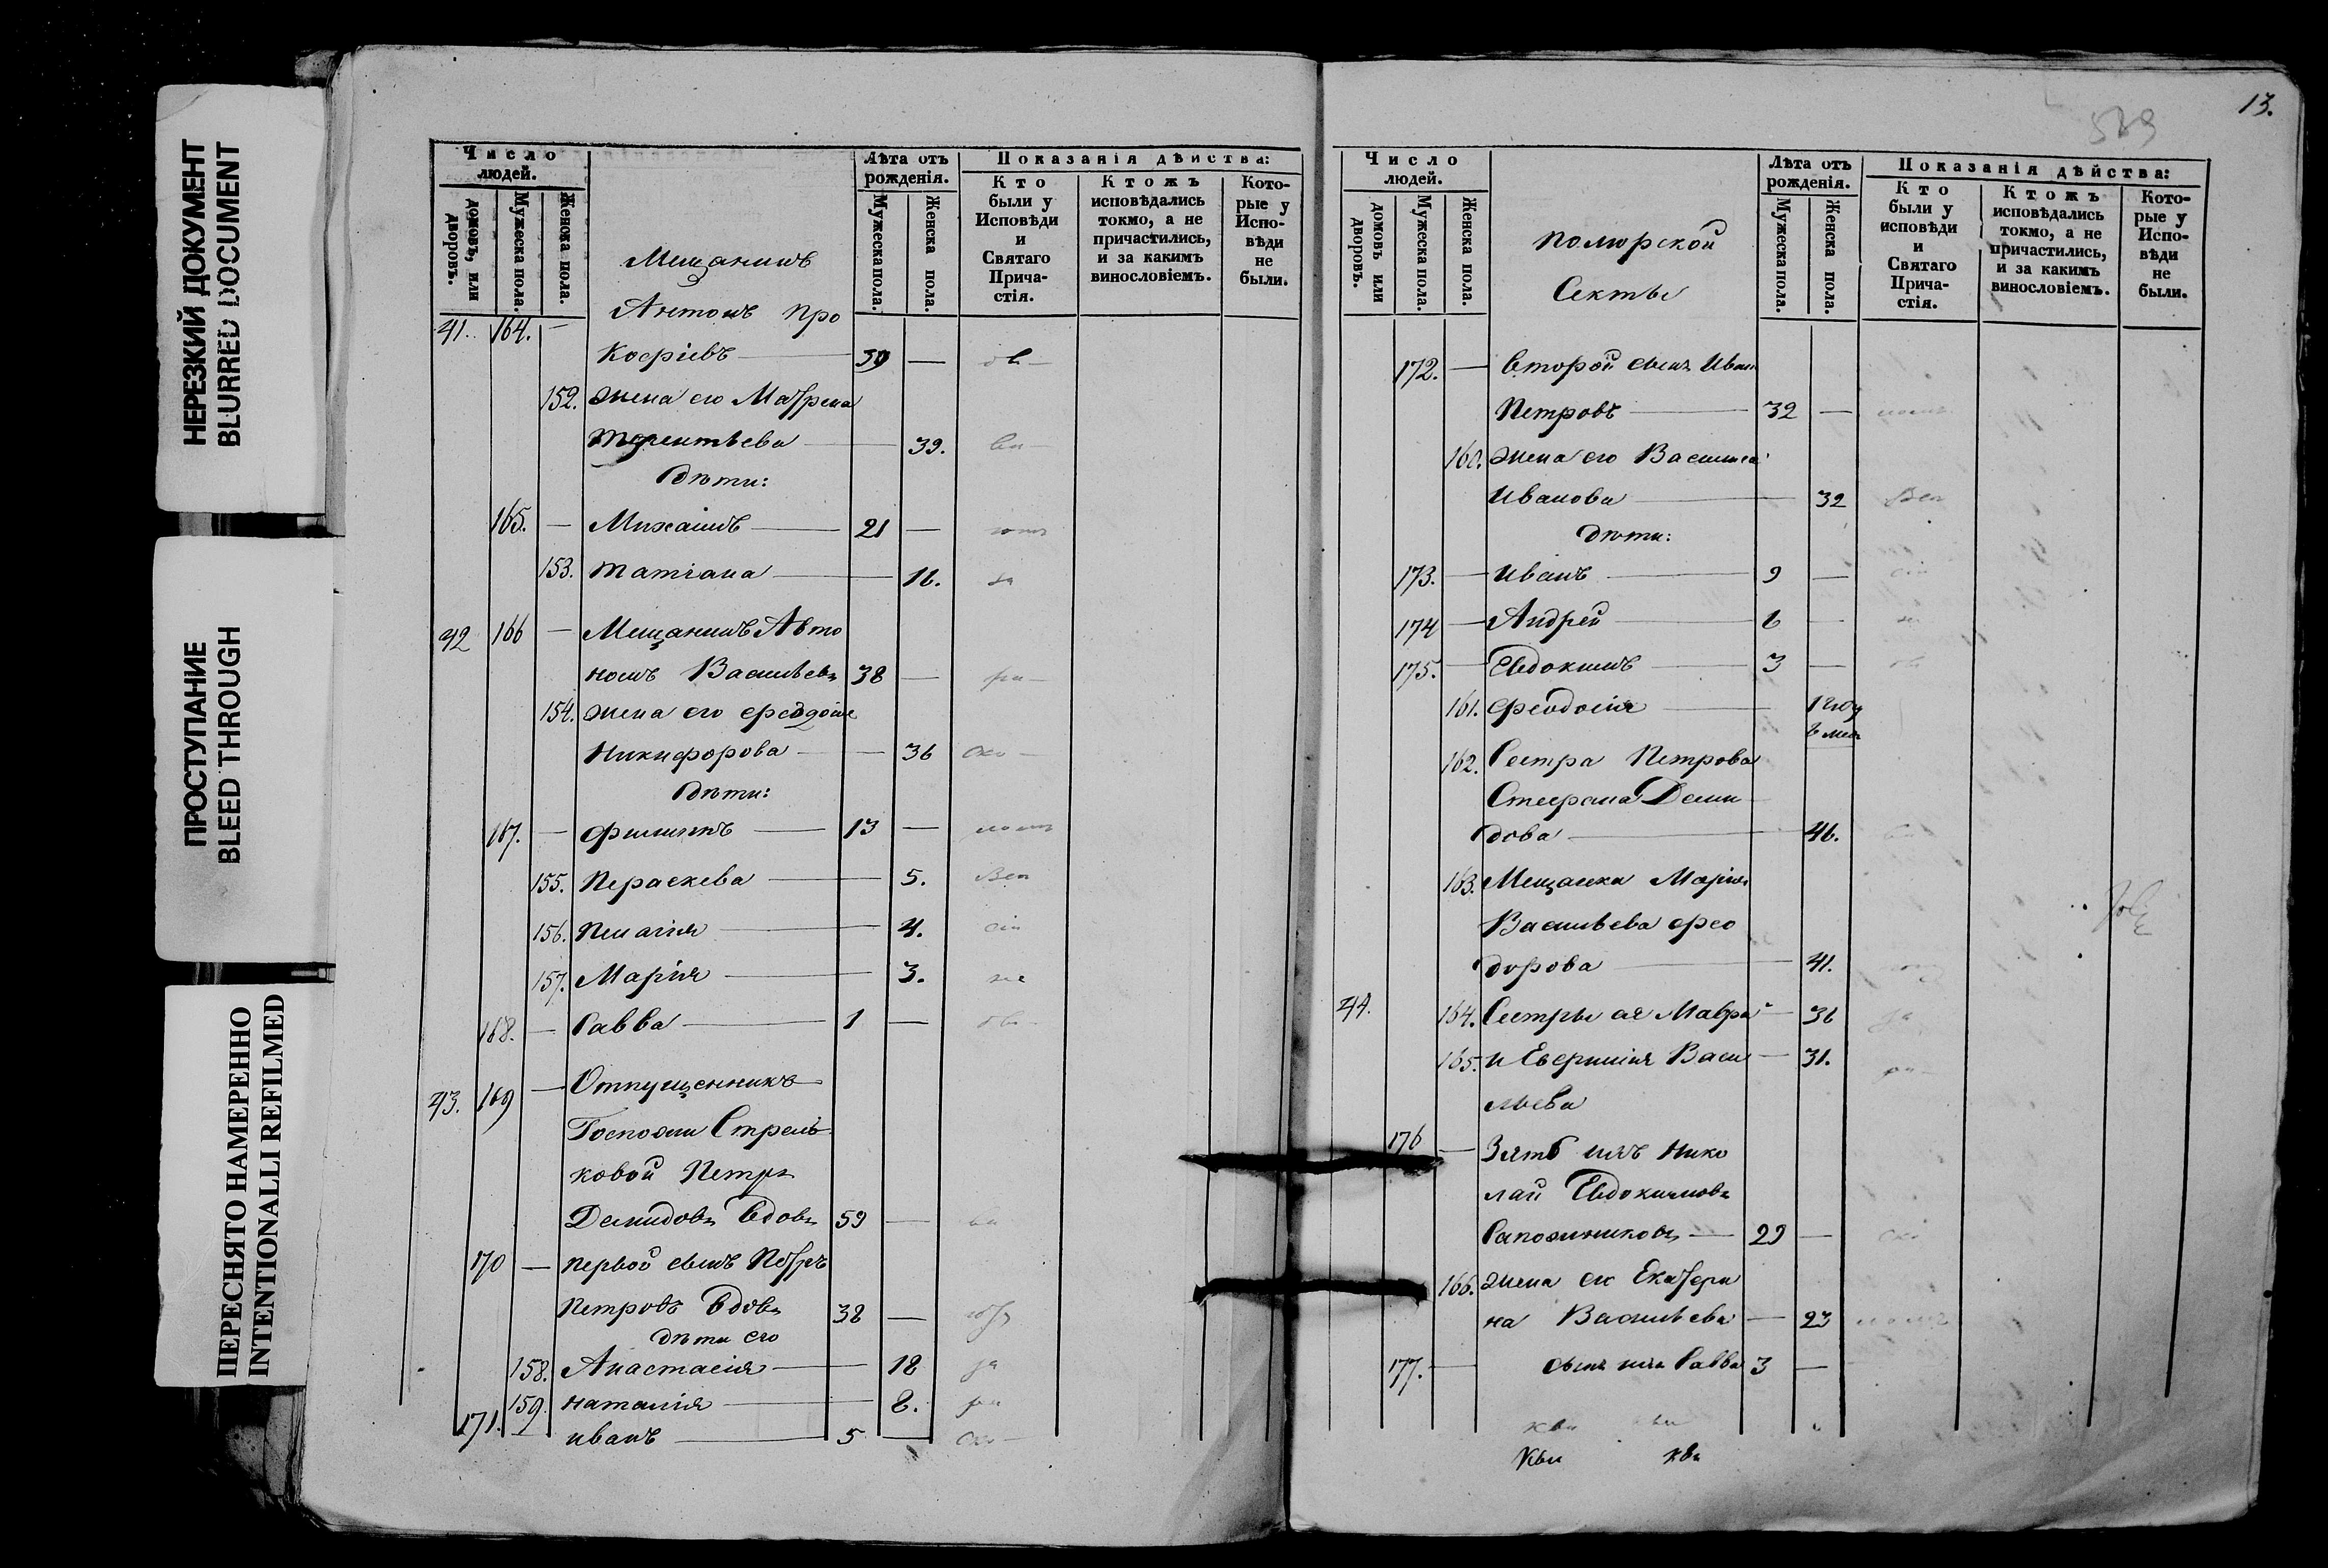 НЕРЕЗКИЙ ДОКУМЕНТ
BLURRED DOCUMENT
ПРОСТУПАНИЕ
BLEED THROUGH
ПЕРЕСНЯТО НАМЕРЕННО
INTENTIONALLI REFILMED
Число людей.
домовъ, или дворовъ.
Мужеска пола.
Женска пола.
Лѣта отъ рожденія.
Мужеска пола.
Женска пола.
Показанія дѣйства:
Кто были у Исповѣди и Святаго Причастія.
Ктожъ исповѣдались токмо, а не причастились, и за какимъ винословіемъ.
Которые у Исповѣди не были.
Мещанинъ
41. 164. — Антонъ Про
кофіевъ 39 —
152. жена его Матрена
Терентьева 39.
дѣти:
165. — Михаилъ 21 —
153. Татіана 16.
42 166 — Мещанинъ Авто
номъ Васильевъ 38 —
154. жена его Феодосія
Никифорова 36
дѣти:
167. — Филиппъ 13 —
155. Пераскева 5.
156. Пелагія 4.
157. Марія 3.
168. — Савва 1 —
43. 169 — Отпущенникъ
Госпожи Стрель
ковой Петръ
Демидовъ вдовъ 59 —
170 — первой сынъ Петръ
Петровъ вдовъ 38 —
дѣти его
158. Анастасія 18
159. Наталія 8.
171. — Иванъ 5 —
13.
Число людей.
домовъ или дворовъ.
Мужеска пола.
Женска пола.
Поморской
Секты
Лѣта отъ рожденія.
Мужеска пола.
Женска пола.
Показанія дѣйства:
Кто были у исповѣди и Святаго Причастія.
Ктожъ исповѣдались токмо, а не причастились, и за какимъ винословіемъ.
Которые у Исповѣди не были.
172. — второй сынъ Иванъ
Петровъ 32 —
160. жена его Василиса
Иванова 32
дѣти:
173. — Иванъ 9 —
174 — Андрей 6 —
175. — Евдокимъ 3 —
161. Феодосія 1 году
6 мес
162. Сестра Петрова
Стефанида Деми
дова 46.
163. Мещанка Марія
Васильева Фео
дорова 41.
44. 164. Сестры ея Мавра — 36
165. и Евфимія Васи — 31.
льева
176 — Зять ихъ Нико
лай Евдокимовъ
Сапожниковъ — 29 —
166. жена его Екатери
на Васильева — 23
177. — сынъ ихъ Савва 3 —